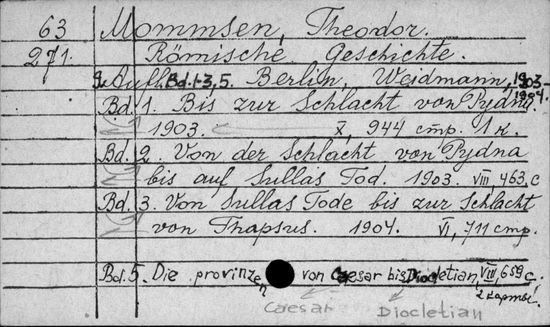 63 Mommsen, Theodor.
271. Römische Geschichte.
9. Aufl. Bd. 1-3, 5. Berlin, Weidmann, 1903,
1904.
Bd. 1. Bis zur Schlacht von Pydna.
1903. X, 944 стр. 1 к.
Bd. 2. Von der Schlacht von Pydna
bis auf Sullas Tod. 1903. VIII, 463, с
Bd. 3. Von Sullas Tode bis zur Schlacht
von Thapsus. 1904. VI, 711 стр.
Bd. 5. Die provinzen von Caesar bis Diocletian, VIII, 659 с.
2 карты.
Caesar Diocletian